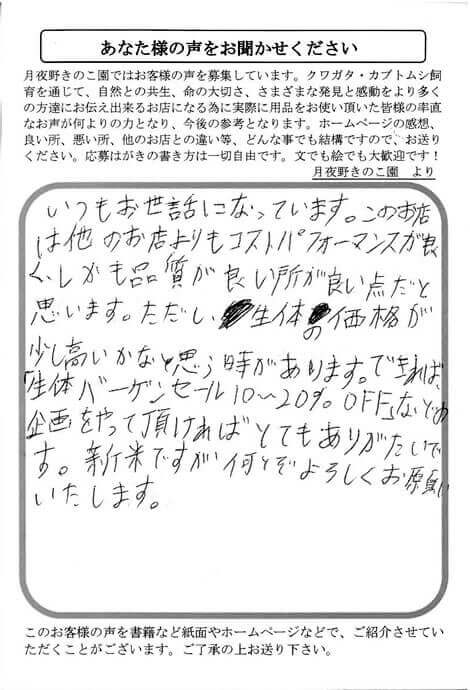 あなた様の声をお聞かせください
月夜野きのこ園ではお客様の声を募集しています。クワガタ・カブトムシ飼
育を通じて、自然との共生、命の大切さ、さまざまな発見と感動をより多く
の方達にお伝え出来るお店になる為に実際に用品をお使い頂いた皆様の率直
なお声が何よりの力となり、今後の参考となります。ホームページの感想、
良い所、悪い所、他のお店との違い等、どんな事でも結構ですので、お送り
ください。応募はがきの書き方は一切自由です。文でも絵でも大歓迎です！
月夜野きのこ園　より
いつもお世話になっています。このお店
は他のお店よりもコストパフォーマンスが良
く、しかも品質が良い所が良い点だと
思います。ただし生体の価格が
少し高いかなと思う時があります。できれば、
「生体バーゲンセール10〜20% OFF」などの
企画をやって頂ければとてもありがたいで
す。新米ですが何とぞよろしくお願い
いたします。
このお客様の声を書籍など紙面やホームページなどで、ご紹介させてい
ただくことがございます。ご了承の上お送り下さい。